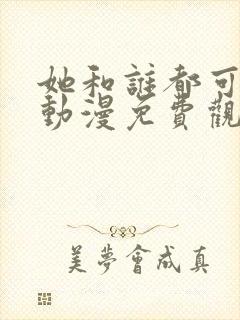 她和誰都可
動漫免費觀
美夢會成真